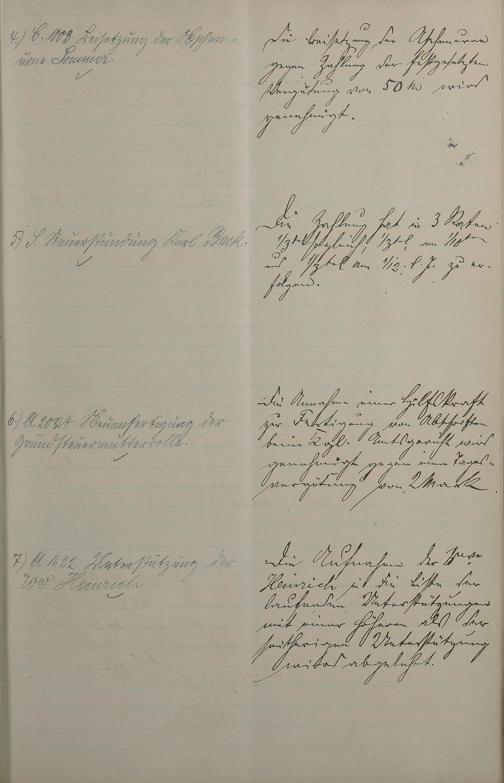 4.) C. 1108 Beisetzung der Aschen-
urne Sommer.
Die Beisetzung der Aschenurne
gegen Zahlung der festgesetzten
Vergütung von 50 M wird
genehmigt.
5) S. Steuerstundung Karl Back.
Die Zahlung hat in 3 Raten
1/3tel sogleich, 1/3tel am 1/10ten
und 1/3tel am 1/12. l. J. zu er-
folgen.
6.) A 2024 Neuanfertigung der
Grundsteuermutterrolle.
Die Annahme einer Hülfskraft
zur Fertigung von Abschriften
beim Kgl. Amtsgericht wird
genehmigt gegen eine Tages-
vergütung von 2 Mark.
7.) A 1622 Unterstützung der
Wwe Heinrich
Die Aufnahme der Wwe
Heinrich in die Liste der
laufenden Unterstützungen
mit einer höheren als der
seitherigen Unterstützung
wird abgelehnt.